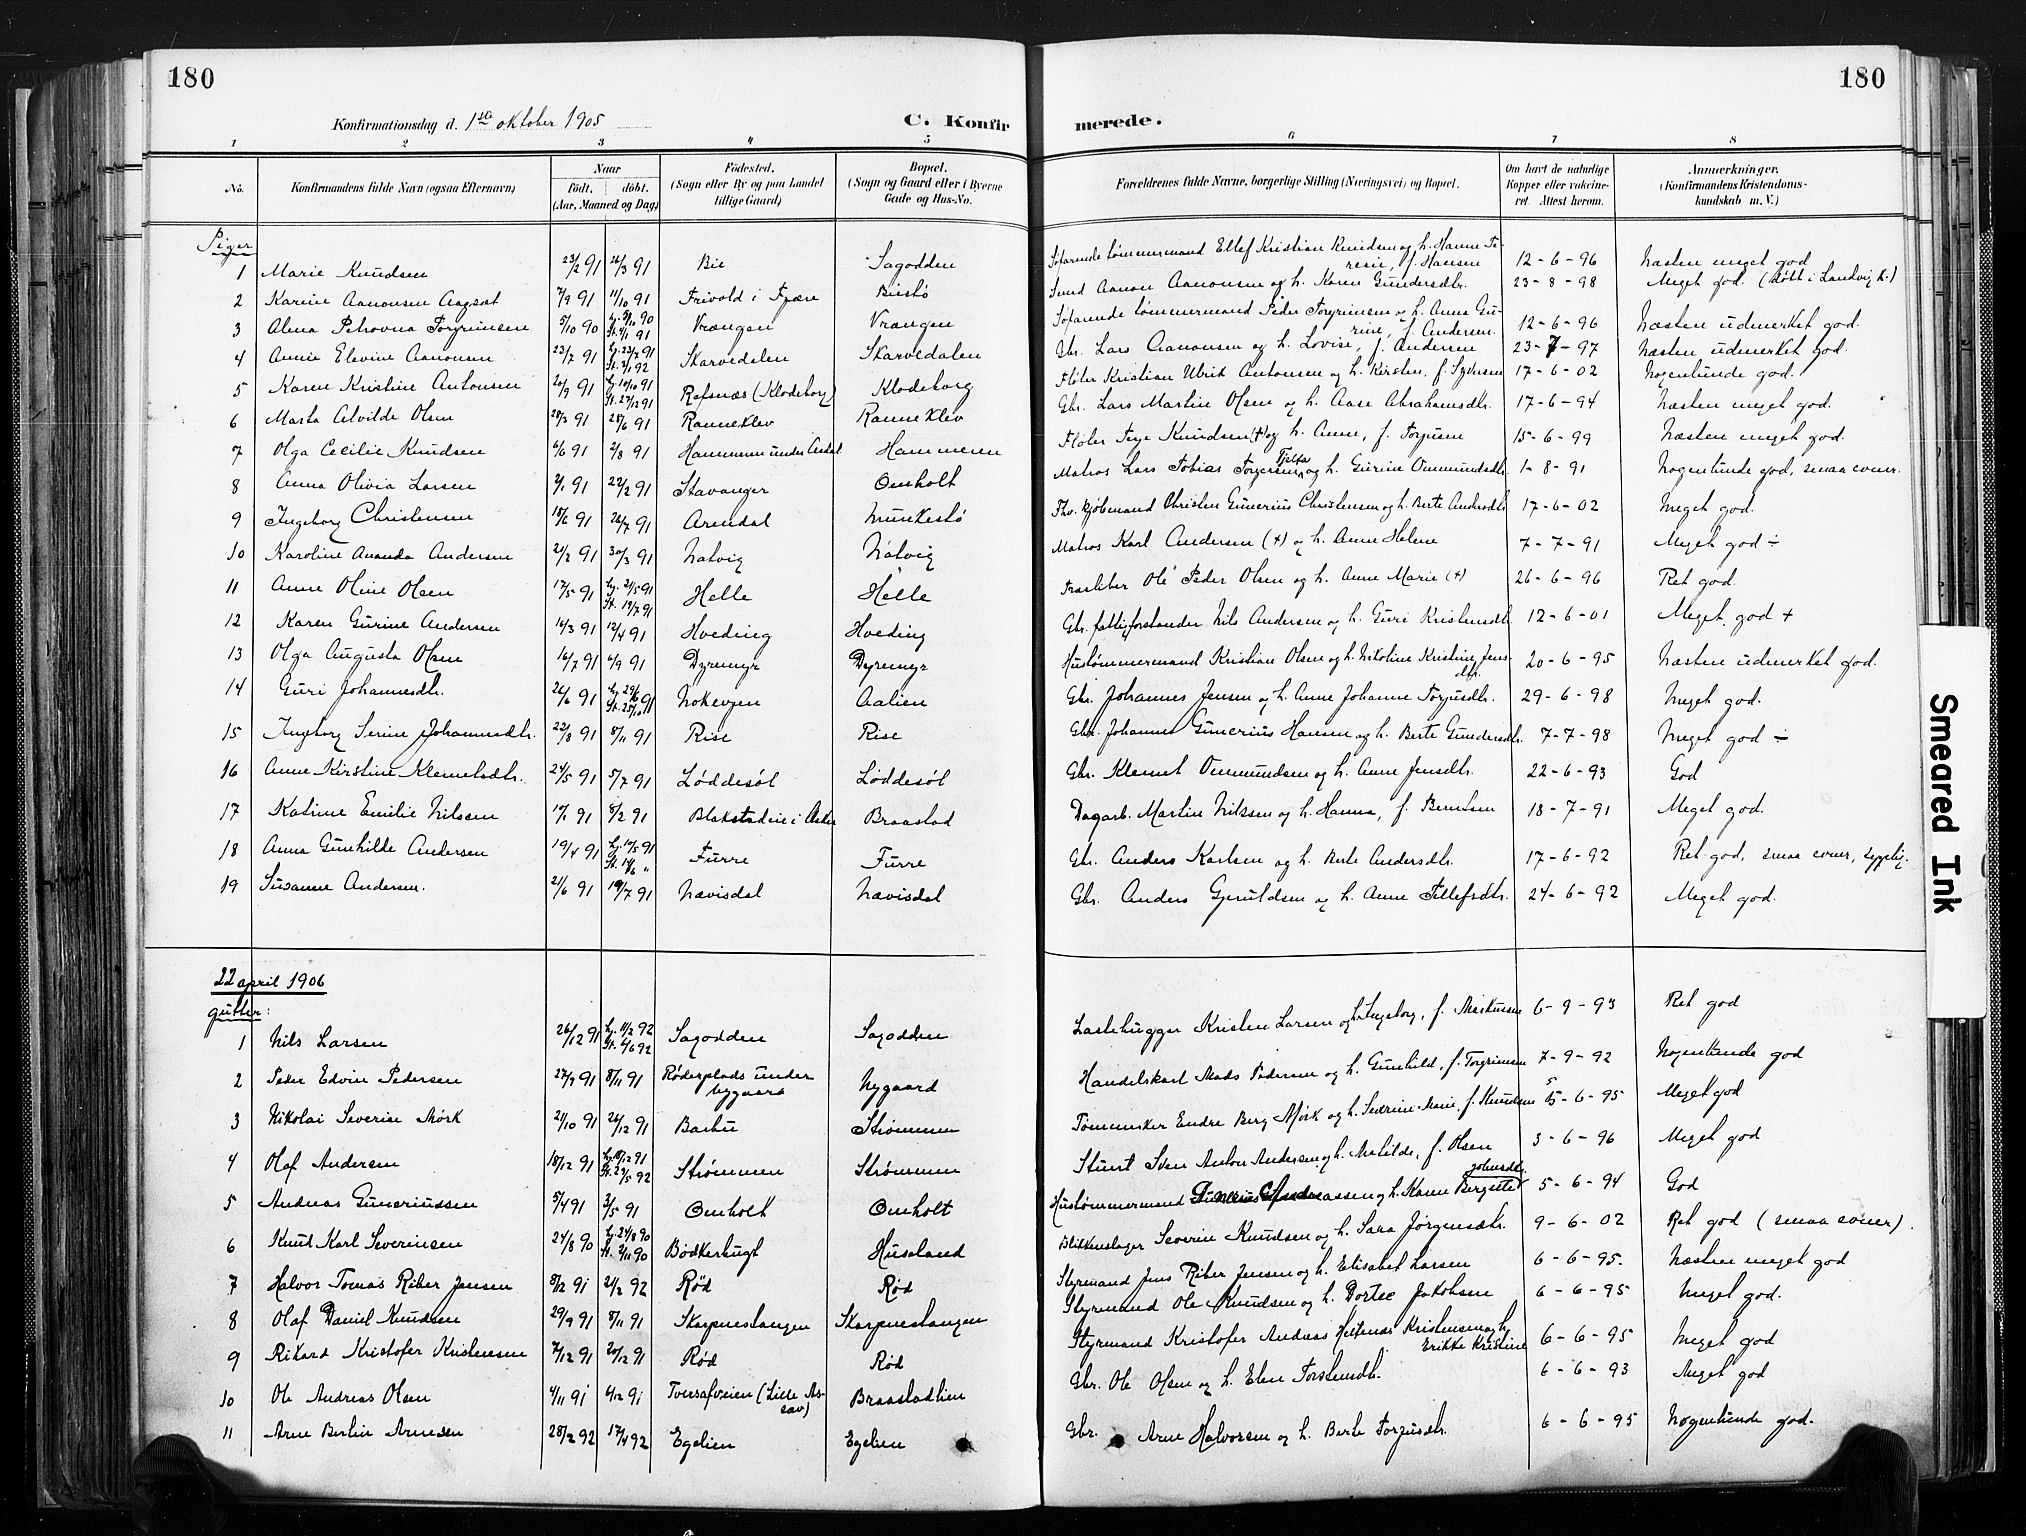 180
180
Konfirmationsdag d. 1ste oktober 1905
C. Konfirmerede.
1 2 3 4 5 6 7 8
No.
Konfirmandens fulde Navn (ogsaa Efternavn)
Naar
födt. döbt.
(Aar, Maaned og Dag)
Födested.
(Sogn eller By og paa Landet
tillige Gaard)
Bopæl.
(Sogn og Gaard eller i Byerne
Gade og Hus-No.
Forældrenes fulde Navne, borgerlige Stilling (Næringsvei) og Bopæl.
Om havt de naturlige
Kopper eller vaccine-
ret. Attest herom.
Anmærkninger.
(Konfirmandens Kristendoms-
kundskab m. V.)
Piger
1 Marie Knudsen 23/2 91 26/3 91 Bie Sagodden Søfarende tømmermand Ellef Kristian Knudsen og h. Hanne Te-
resie, f. Hansen 12-6-96 Næsten meget god
2 Karine Aanonsen 7/9 91 11/10 91 Frivold i Fjære Biestø Aanon Aanonsen og h. Karen Gundersdtr. 23-8-98 Meget god. (døbt i Landvig k.)
3 Alma Petrovna Torgrimsen 5/10 90 Hj. 8/10 90 St. 4/1 91 Vrængen Vrængen Søfarende tømmermand Peder Torgrimsen og h. Anna Gu-
rine, f. Andersen 12-6-96 Næsten udmerket god.
4 Annie Elevine Aanonsen 23/7 91 Hj. 23/7 91 St. 4/1 92 Skarvedalen Skarvedalen Gbr. Lars Aanonsen og h. Lovise, f. Andersen 23-7-97 Næsten udmerket god.
5 Karen Kristine Antonsen 20/9 91 Hj. 10/10 91 St. 27/12 91 Refsnæs (Klodeborg) Klodeborg Fløter Kristian Ulrik Antonsen og h. Kirsten, f. Syversen 17-6-02 Nogenlunde god.
6 Marta Alvilde Olsen 28/3 91 28/6 91 Ranneklev Ranneklev Gbr. Lars Martin Olsen og h. Aase Abrahamsdtr. 17-6-94 Næsten meget god.
7 Olga Cecilie Knudsen 6/6 91 2/8 91 Hammeren under Hammeren Fløter Terje Knudsen (+) og h. Anne, f. Torjusen 15-6-99 Næsten meget god.
8 Anna Olivia Larsen 2/1 91 22/2 91 Stavanger Omholt Matros Lars Tobias Torgersen Tjelta og h. Gurine Ommundsdtr. 1-8-91 Nogenlunde god, smaa evner.
9 Ingeborg Christensen 18/6 91 26/7 91 Arendal Munkestø Fhv. kjøbmand Christen Gunerius Christensen og h. Berte Andersdtr. 17-6-02 Meget god.
10 Karoline Amanda Andersen 21/2 91 30/3 91 Natvig Natvig Matros Karl Andersen (+) og h. Anne Helene 7-7-91 Meget god ÷
11 Anne Oline Olsen 17/5 91 Hj. 21/5 91 St. 19/7 91 Helle Helle Ole Peder Olsen og h. Anne Marie (+) 26-6-96 Ret god.
12 Karen Gurine Andersen 14/3 91 12/4 91 Hveding Hveding Gbr. fattigforstander Nils Andersen og h. Guri Kristensdtr. 12-6-01 Meget god +
13 Olga Augusta Olsen 16/7 91 6/9 91 Dyremyr Dyremyr Hustømmermand Kristian Olsen og h. Nikoline Kristine Jens-
dtr. 20-6-95 Næsten udmerket god.
14 Guri Johannesdtr. 26/6 91 Hj. 29/6 91 St. 25/10 91 Nokevjen Aalien Gbr. Johannes Jensen og h. Anne Johanne Torjusdtr. 29-6-98 Meget god.
15 Ingeborg Serine Johannesdtr. 22/8 91 8/11 91 Rise Rise Gbr. Johannes Gunerius Hansen og h. Berte Gundersdtr. 7-7-98 Meget god ÷
16 Anne Kirstine Klemetsdtr. 24/5 91 5/7 91 Løddesøl Løddesøl Gbr. Klemet Ommundsen og h. Anne Jensdtr. 22-6-93 God
17 Katrine Emilie Nilsen 10/1 91 8/2 91 Blakstadeie i Braastad Dagarb. Martin Nilssen og h. Hanna, f. Berntsen 18-7-91 Meget god.
18 Anna Gunhilde Andersen 19/4 91 Hj. 10/5 91 St. 14/6 " Furre Furre Gbr. Anders Karlsen og h. Berte Andersdtr. 17-6-92 Ret god, smaa evner, sygelig.
19 Susanne Andersen. 21/6 91 19/7 91 Nævisdal Nævisdal Gbr. Anders Gjeruldsen og h. Anne Tellefsdtr. 24-6-92 Meget god.
22 april 1906
gutter:
1 Nils Larsen 26/12 91 Hj. 11/2 92 St. 6/6 92 Sagodden Sagodden Lastehugger Kristen Larsen og h. Ingeborg, f. Markussen 6-9-93 Ret god
2 Peder Edvin Pedersen 27/9 91 8/11 91 Røderplads under
Nygaard Nygaard Handelskarl Mads Pedersen og h. Gunhild, f. Torgrimsen 7-9-92 Nogenlunde god
3 Nikolai Severin Mørk 21/10 91 26/12 91 Barbu Strømmen Endre Berg Mørk og h. Severine Marie, f. Knudsen 5-6-95 Meget god
4 Olaf Andersen 18/12 91 Hj. 18/12 91 St. 29/5 92 Strømmen Strømmen Stuert Sven Anton Andersen og h. Matilde, f. Olsen 3-6-96 Meget god
5 Andreas Guneriussen 5/4 91 3/5 91 Omholt Omholt Hustømmermand Gunerius Andreassen og h. Karen Bergitte Johnsdtr. 5-6-94 God
6 Knut Karl Severinsen 24/8 90 Hj. 24/8 90 St. 2/11 90 Bødkerhugt Husaland Blikkenslager Severin Knudsen og h. Sara Jørgensdtr. 9-6-02 Ret god (smaa evner).
7 Halvor Tomas Riber Jensen 8/2 91 21/2 92 Rød Rød Styrmand Jens Riber Jensen og h. Elisabet Larsen 6-6-95. Næsten meget god
8 Olaf Daniel Knudsen 29/9 91 8/11 91 Skarpnestangen Skarpnestangen Styrmand Ole Knudsen og h. Dortea Jakobsen 6-6-95 Meget god.
9 Rikard Kristofer Kristensen 7/12 91 20/12 91 Rød Rød Styrmand Kristofer Andreas Kristensen og h.
Erikke Kristine 6-6-95 Meget god
10 Ole Andreas Olsen 4/11 91 6/12 91 Tversafveien (Lille As-
sav) Braastadlien Gbr. Ole Olsen og h. Elen Torstensdtr. 6-6-93 Meget god
11 Arne Bertin Arnesen 28/2 92 17/4 92 Egelien Egelien Gbr. Arne Halvorsen og h. Berte Torjusdtr. 6-6-95 Nogenlunde god.
Smeared Ink